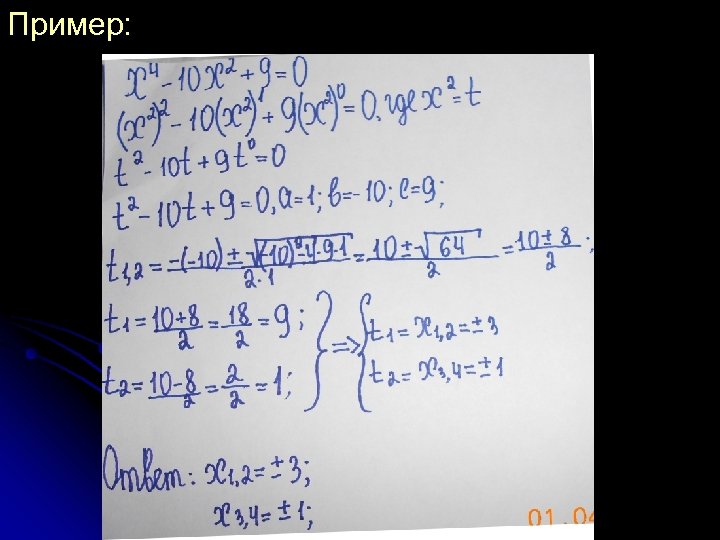 Пример:
x⁴ - 10x² + 9 = 0
(x²)² - 10(x²)¹ + 9(x²)⁰ = 0, где x² = t
t² - 10t + 9t⁰ = 0
t² - 10t + 9 = 0, a = 1; в = -10; c = 9;
t₁,₂ = (-(-10) ± √((-10)² - 4·9·1))/(2·1) = (10 ± √64)/2 = (10 ± 8)/2;
t₁ = (10+8)/2 = 18/2 = 9; } => { t₁ = x₁,₂ = ±3
t₂ = (10-8)/2 = 2/2 = 1; } => { t₂ = x₃,₄ = ±1
Ответ: x₁,₂ = ±3;
x₃,₄ = ±1;
01.04